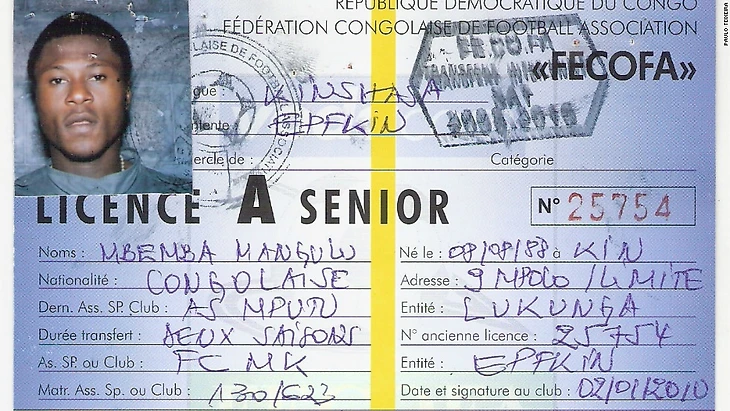 RÉPUBLIQUE DÉMOCRATIQUE DU CONGO
FÉDÉRATION CONGOLAISE DE FOOTBALL ASSOCIATION
«FECOFA»
KINSHASA
EPFKIN
Catégorie
LICENCE A SENIOR
N° 25754
Noms : MBEMBA MANGULU
Né le : 08/08/88 à KIN
Nationalité : CONGOLAISE
Adresse : 9 MPOLO /LIMITE
Dern. Ass. SP. Club : AS MPUTU
Entité : LUKUNGA
Durée transfert : DEUX SAISONS
N° ancienne licence : 25754
As. SP. ou Club : FC MK
Entité : EPFKIN
Matr. Ass. Sp. ou Club : 130/623
Date et signature au club : 02/01/2010
PAULO TEIXEIRA